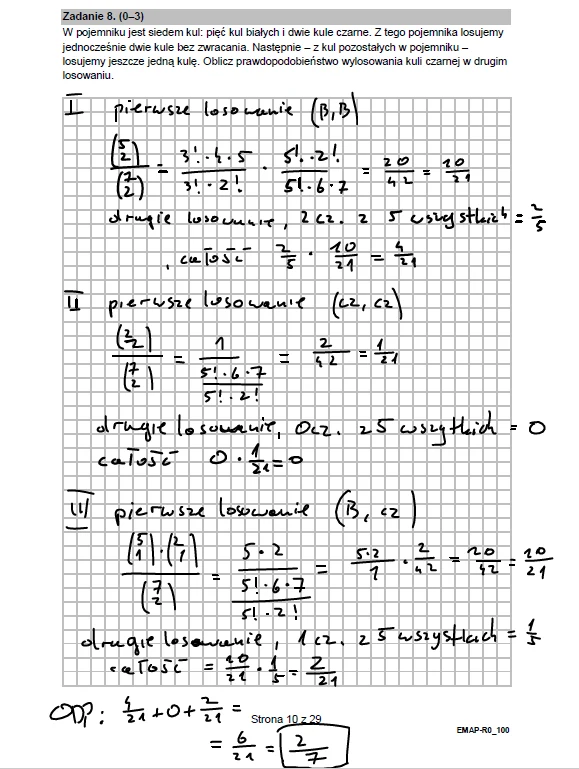 Zadanie 8. (0–3)
W pojemniku jest siedem kul: pięć kul białych i dwie kule czarne. Z tego pojemnika losujemy
jednocześnie dwie kule bez zwracania. Następnie – z kul pozostałych w pojemniku –
losujemy jeszcze jedną kulę. Oblicz prawdopodobieństwo wylosowania kuli czarnej w drugim
losowaniu.
I pierwsze losowanie (B,B)
(5 2)/(7 2) = 3!·4·5/3!·2! · 5!·2!/5!·6·7 = 20/42 = 10/21
drugie losowanie, 2 cz. z 5 wszystkich = 2/5
, całość 2/5 · 10/21 = 4/21
II pierwsze losowanie (cz, cz)
(2 2)/(7 2) = 1/(5!·6·7/5!·2!) = 2/42 = 1/21
drugie losowanie, 0 cz. z 5 wszytkich = 0
całość 0 · 1/21 = 0
III pierwsze losowanie (B, cz)
(5 1)·(2 1)/(7 2) = 5·2/(5!·6·7/5!·2!) = 5·2/1 · 2/42 = 20/42 = 10/21
drugie losowanie, 1 cz. z 5 wszystkich = 1/5
całość = 10/21 · 1/5 = 2/21
ODP: 4/21 + 0 + 2/21 =
= 6/21 = 2/7
Strona 10 z 29
EMAP-R0_100